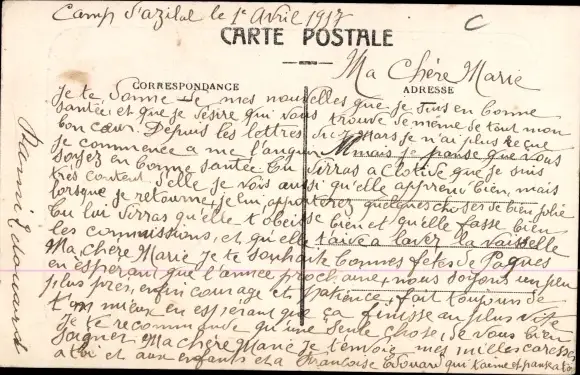 Camp d'azilal le 1e Avril 1917
CARTE POSTALE
Ma Chère Marie
CORRESPONDANCE
ADRESSE
Je te donne de mes nouvelles que je suis en bonne
santée et que je désire qui vous trouve de même de tout mon
bon cœur. Depuis les lettres du 7 Mars je n'ai plus reçue
je commence a me languir Mais je panse que vous
soyez en bonne santée. Tu diras a Clotide que je suis
très content d'elle je vois aussi qu'elle apprend bien, mais
lorsque je retournerai je lui apporterer quelques choses de bien jolie
Tu lui diras qu'elle t'obeisse bien et qu'elle fasse bien
les commissions, et qu'elle t'aide a laver la vaisselle
Ma Chère Marie je te souhaite bonnes fetes de Paques
en espérant que l'année prochaine nous soyons un peu
plus près, enfin courage et patience, fait toujours de
ton mieux en esperant que ça finisse au plus vite
Je te recommande qu'une seule chose, de vous bien
soigner Ma Chère Marie je t'envoie mes milles caresses
a toi et aux enfants et a Françoise Edouard qui t'aime et panse a toi
Edouard